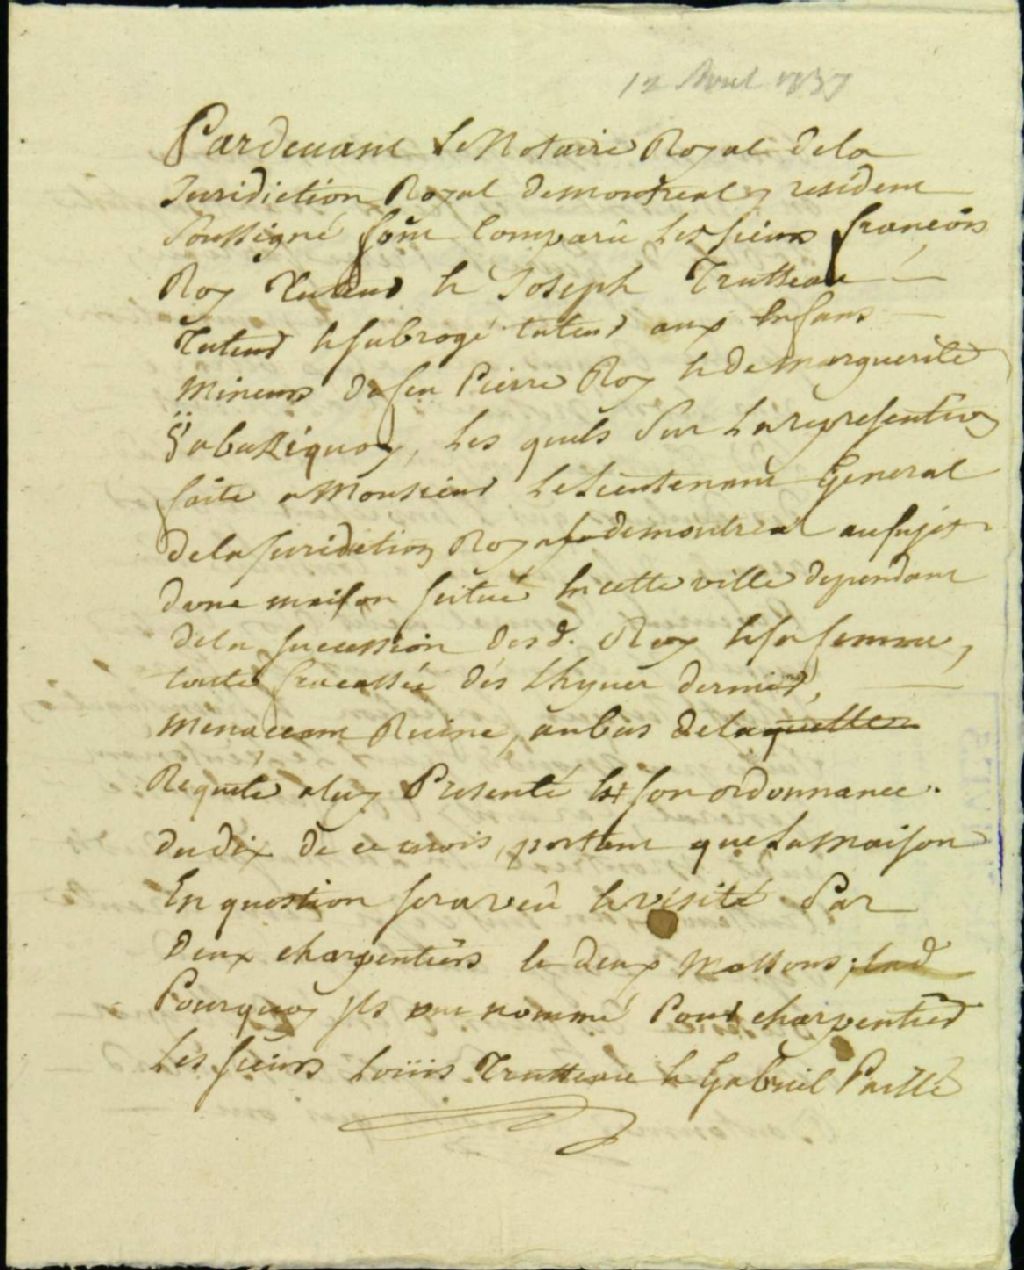 12 Avril 1737
Pardevant Le Notaire Royal dela
Juridiction Royal demontreal y resident
Soussigné sont Comparû Les sieurs françois
Roy Tuteur et Joseph Trutteau
Tuteur et subrogé tuteur aux Enfans
Mineurs de feu Pierre Roy et de marguerite
Les quels Sur La representation
faite a Monsieur Le Lieutenant General
dela Juridiction Royalle demontreal au sujet
dune maison scitué En cette ville dependant
dela succession desd. Roy et sa femme,
toute fracassée dés Lhyver dernier,
Menaceant Ruine, au bas dela quelle
Requete a luy Presenté Est son ordonnance
du dix de ce mois, portant que La Maison
En question sera veû et visité Par
Deux charpentiers et deux Massons;
Pourquoy ils ont nommé Pour charpentier
Les sieurs Loüis Trutteau et Gabriel Paillé